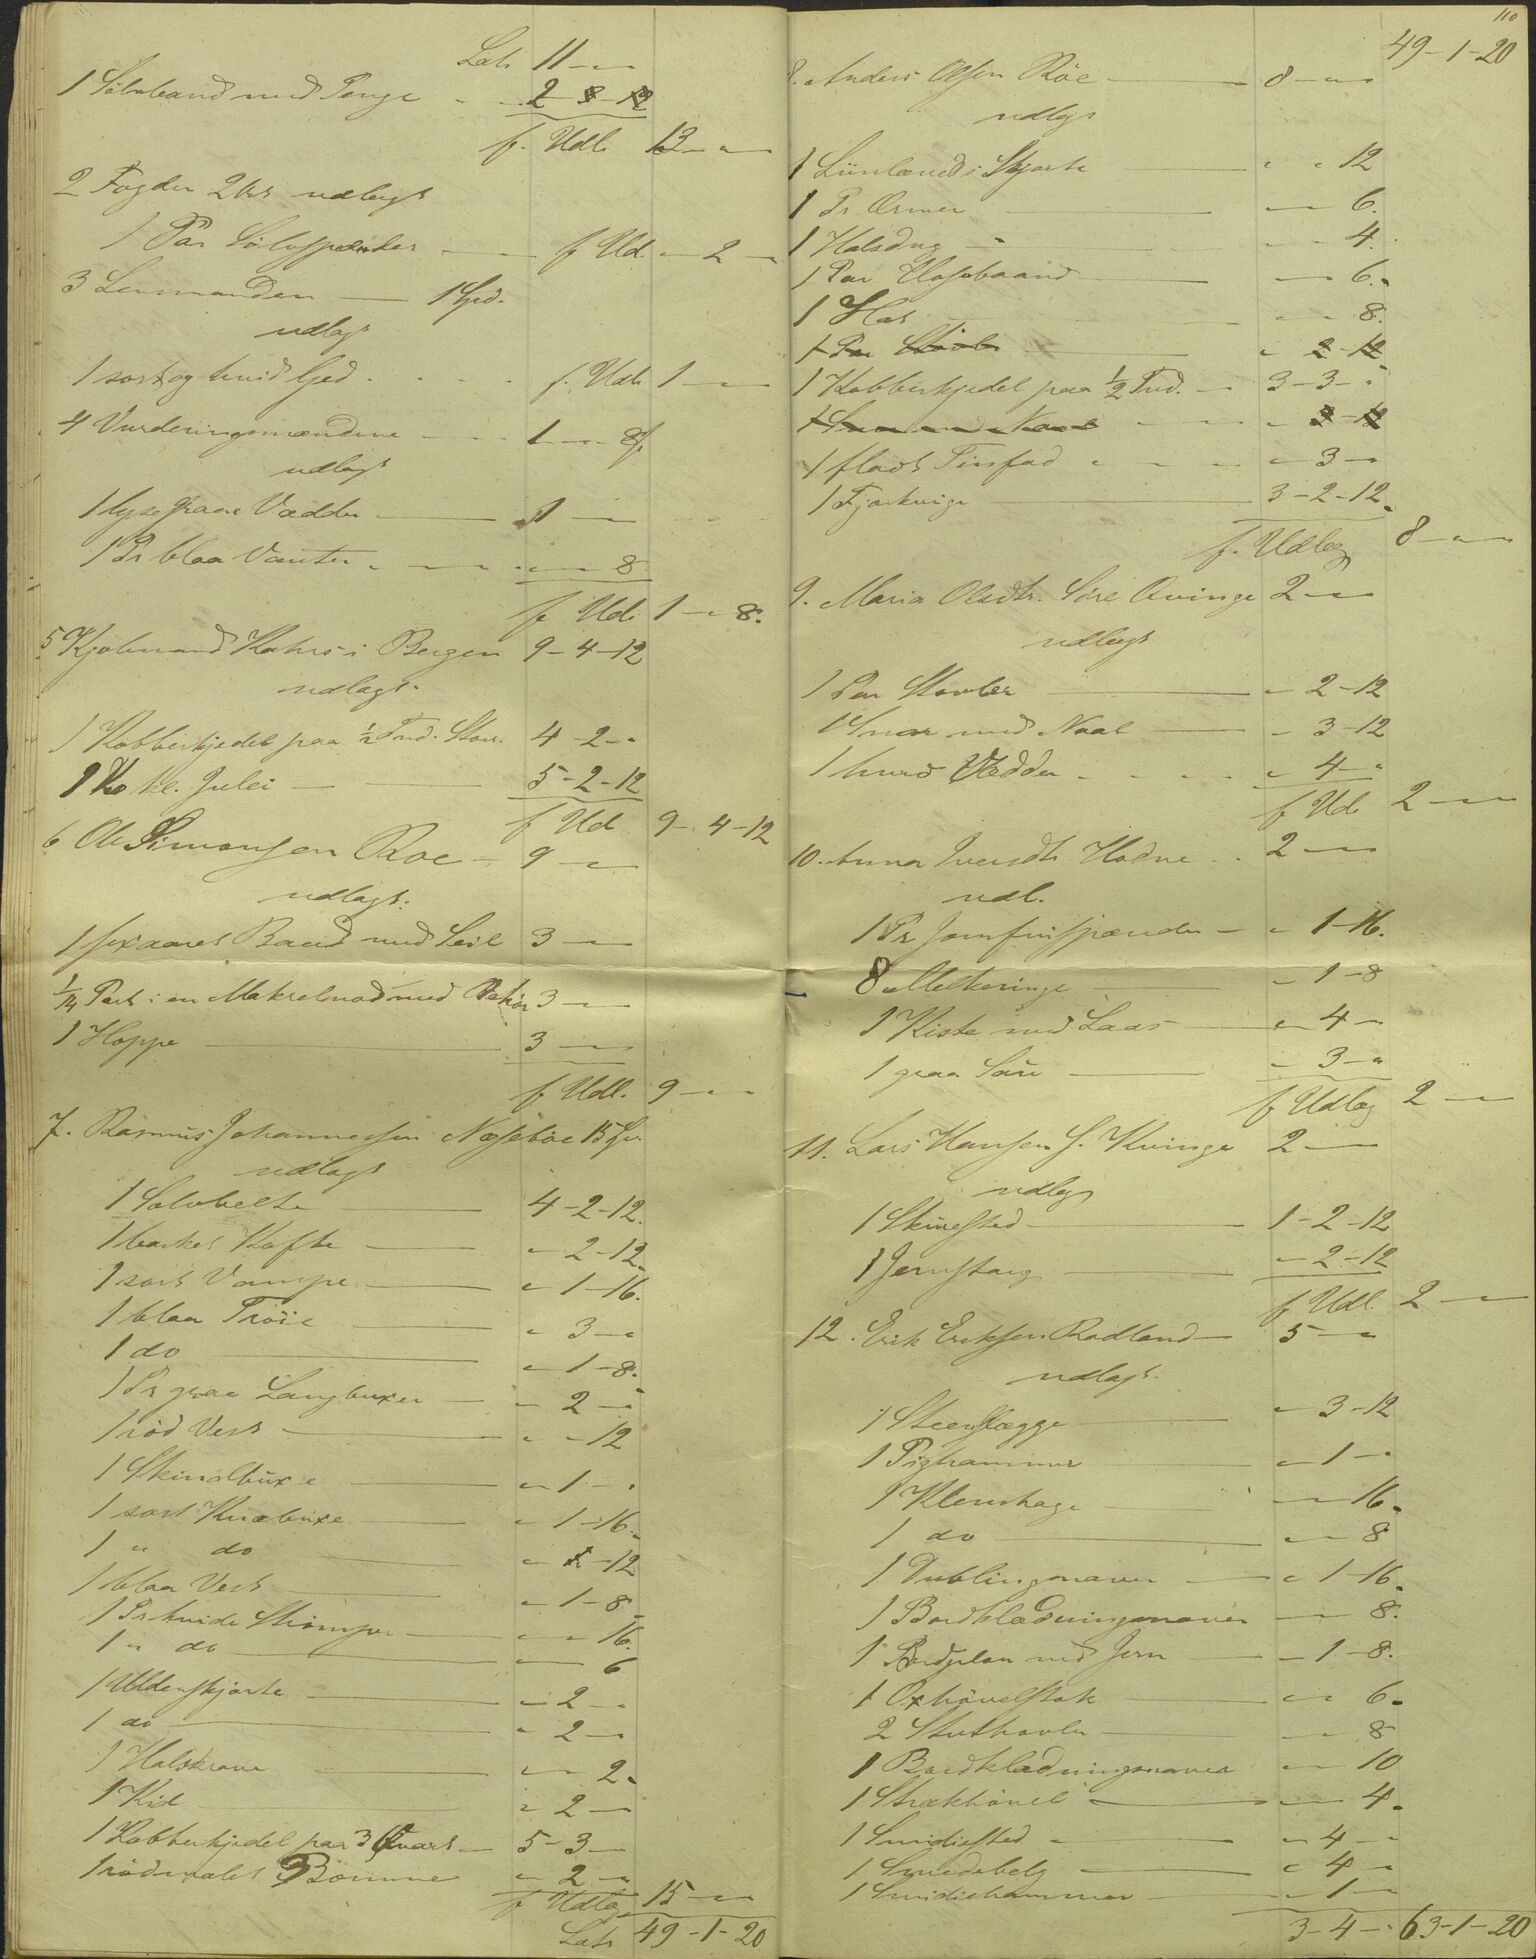 Lats 11 - "
1 Sölvbaand med Penge 2 - 3 - 12
f. Udl. 13 - " -
2 Fogden 2 udlagt
1 Par Sölvspender f Udl. " - 2 -
3 Lensmanden 1 Spd.
udlagt
1 sort og hvid Ged f. Udl. 1 - "
4 Vurderingsmændene 1 - " - 8 f
udlagt
1 lysegraae Vædder 1 - "
1 Pr blaa Vanter " - " - 8
f Udl. 1 - " - 8.
5 Kjöbmand Kahrs i Bergen 9 - 4 - 12
udlagt.
1 Kobberkjedel paa 1/2 Tnd. Stor. 4 - 2 - "
1 Ko kl. Julei 5 - 2 - 12
f Udl 9 - 4 - 12
6 Ole Simonsen Röe 9 - "
udlagt:
1 sexaaret Baad med Seil 3 - "
1/14 Part i en Makrelnod med Behör 3 - "
1 Hoppe 3 - "
f Udl. 9 - "
7. Rasmus Johannessen Næseböe 15 Spd.
udlagt
1 Sölvbelte 4 - 2 - 12.
1 Kofte " - 2 - 12.
1 sort Vampe " - 1 - 16.
1 blaa Tröie " - 3 - "
1 do " - 1 - 8.
1 Pr graa Langbuxer " - 2 - "
1 röd Vest " - " - 12
1 Skindbuxe " - 1 - "
1 sort Knæbuxe " - 1 - 16.
1 " do " - 1 - 12
1 blaa Vest " - 1 - 8
1 Pr hvide Strömper " - " - 16.
1 " do " - " - 6
1 Uldenskjorte " - 2 - "
1 do " - 2 - "
1 Halskrave " - " 2.
1 Kid " - 2 - "
1 Kobberkjedel paa 3 Qvart 5 - 3 - "
1 rödmalet Bömme " - 2 - "
f Udlæg 15 - "
Lats 49 - 1 - 20
110
49 - 1 - 20
8. Anders Olsen Röe 8 - "
udlagt
1 Linlæreds Skjorte " " 12
1 Pr. Ærmer " - 6.
1 Halsdug " - 4.
1 Par Hosebaand " - 6.
1 Hat " - 8.
1 Par Stövler " 2 - 12
1 Kobberkjedel paa 1/2 Tnd. 3 - 3 - "
1 Snar med Naal " 3 - 12
1 fladt Tinfad " - 3 - "
1 Fjorkvige 3 - 2 - 12.
f. Udlæg 8 - "
9. Maria Olsdtr. Söre Qvinge 2 - "
udlagt
1 Par Stövler " - 2 - 12
1 Snar med Naal " - 3 - 12
1 hvid Vædder " - 4 - "
f Udl 2 - "
10. Anna Iversdtr Hodne 2 - "
udl.
1 Pr Jomfruspænder " 1 - 16.
8 Melkeringe " - 1 - 8
1 Kiste med Laas " - 4 - "
1 graa Söu " - 3 - "
f Udlæg 2 - "
11. Lars Hansen S. Kvinge 2 - "
udlagt
1 1 - 2 - 12
1 Jernstang " - 2 - 12
f Udl. 2 - "
12. Erik Eriksen Rodland 5 - "
udlagt.
1 Steenslægge " - 3 - 12
1 Pighammer " - 1 - "
1 Klenhage " - 16.
1 do " - 8
1 Dublingsnaver " 1 - 16.
1 Bordklædningsnaver " - 8.
1 med Jern " - 1 - 8.
1 Oxhövelstok " " 6.
2 Sluthövler " - 8
1 Bordklædningsnaver " - 10
1 Strækhövel " - 4.
1 Smidiested " - 4 - "
1 Smedebelg " 4 - "
1 Smidiehammer " - 1 - "
3 - 4 - " 63 - 1 - 20